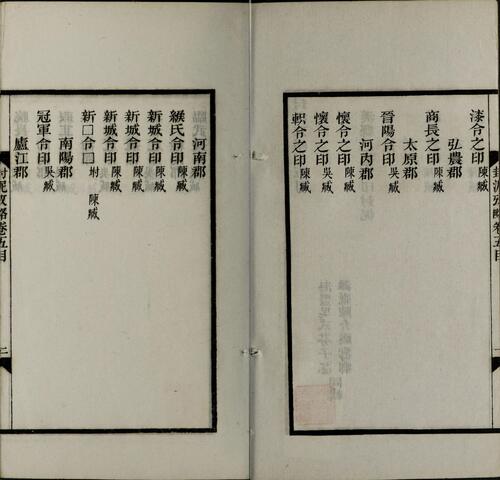 漆令之印陳臧
弘農郡
商長之印陳臧
太原郡
晉陽令印吳臧
河內郡
懷令之印陳臧
懷令之印吳臧
軹令之印陳臧
河南郡
緱氏令印陳臧
新城令印陳臧
新城令印陳臧
新城令印陳臧
新□令□坿陳臧
南陽郡
冠軍令印吳臧
廬江郡
封泥攷略卷五目
二